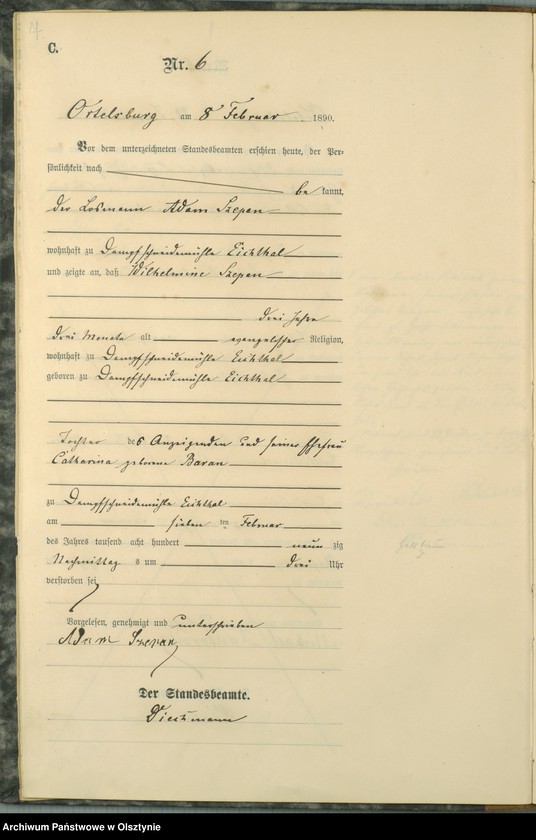 C.
Nr. 6
Ortelsburg am 8 Februar 1890.
Vor dem unterzeichneten Standesbeamten erschien heute, der Per-
sönlichkeit nach
be kannt,
der Losmann Adam Szepan
wohnhaft zu Dampfschneidemühle Eichthal
und zeigte an, daß Wilhelmine Szepan
drei Jahre
drei Monate alt evangelischer Religion,
wohnhaft zu Dampfschneidemühle Eichthal
geboren zu Dampfschneidemühle Eichthal
Tochter des Anzeigenden und seiner Ehefrau
Catharina geborene Baran
zu Dampfschneidemühle Eichthal
am sieben ten Februar
des Jahres tausend acht hundert neun zig
Nachmittag s um drei Uhr
verstorben sei
Vorgelesen, genehmigt und unterschrieben
Adam Szepan
Der Standesbeamte.
Archiwum Państwowe w Olsztynie